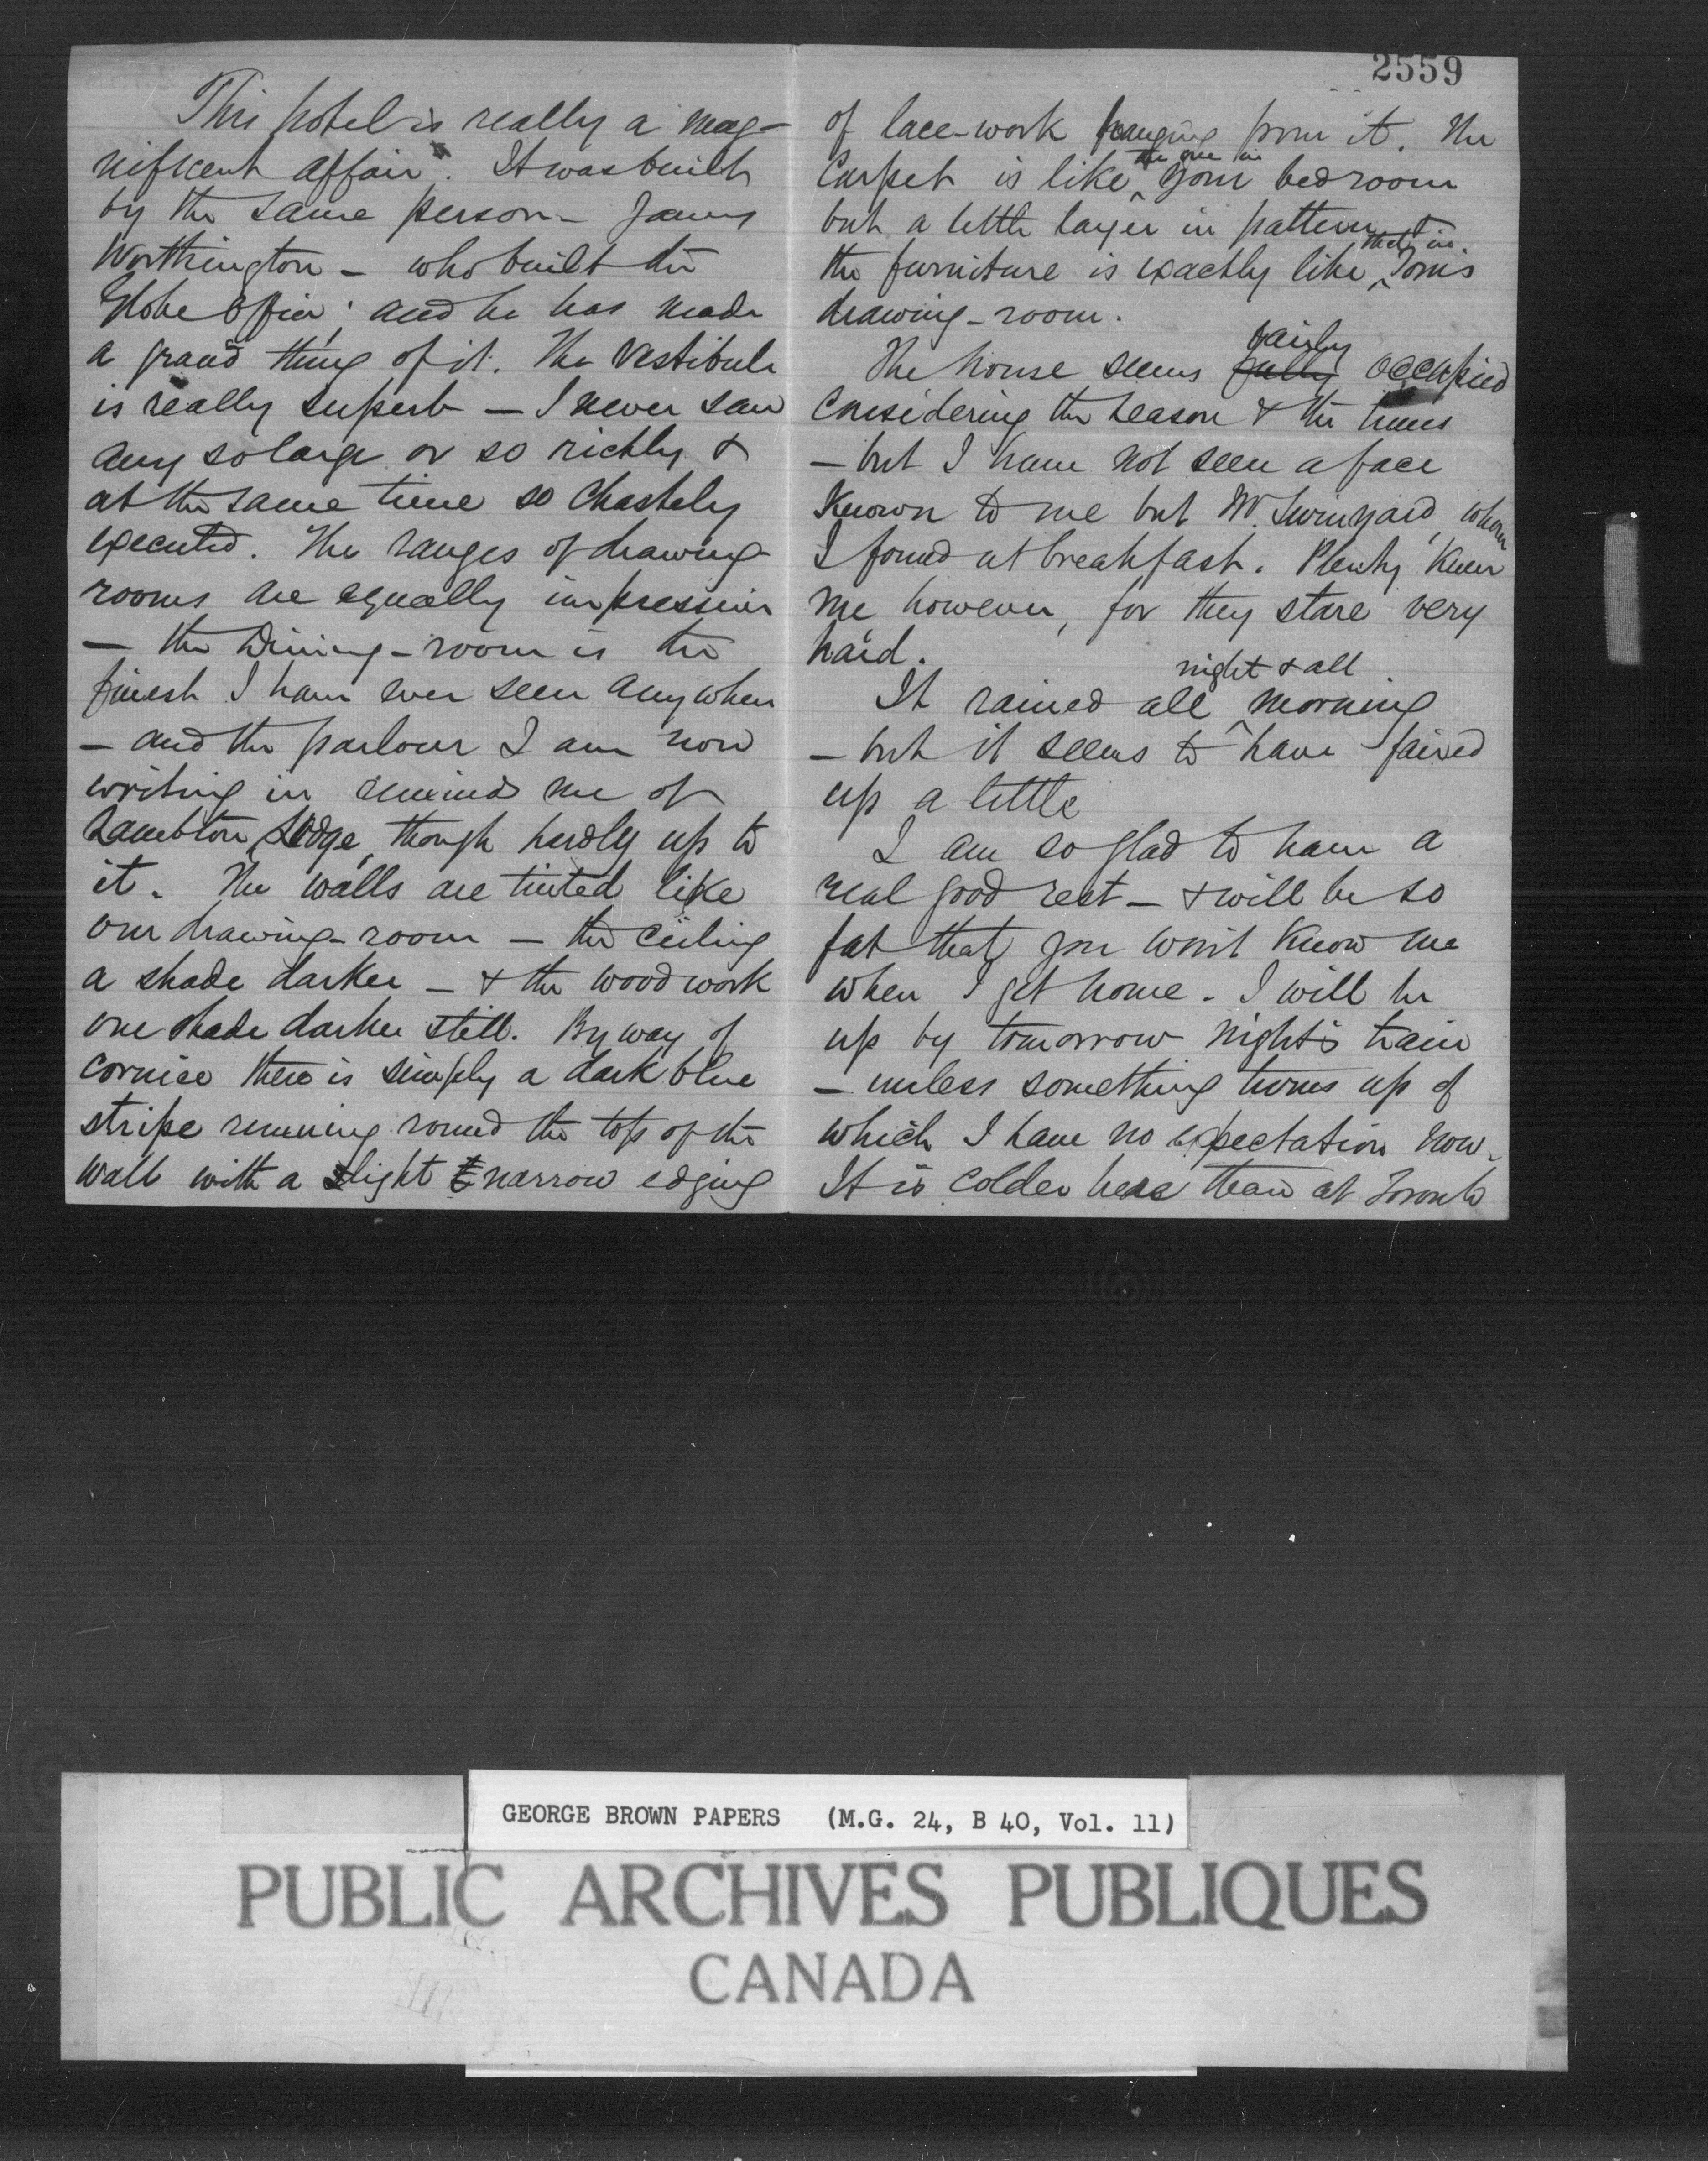 2559
This hotel is really a mag-
nificent affair. It was built
by the same person - James
Worthington - who built the
Globe Office; and he has made
a grand thing of it. The Vestibule
is really superb - I never saw
any so large or so richly &
at the same time so chastely
executed. The ranges of drawing
rooms are equally impressive
- the Dining-room is the
finest I have ever seen anywhere
- and the parlour I am now
writing in reminds me of
Lambton Lodge, though hardly up to
it. The walls are tinted like
our drawing-room - the ceiling
a shade darker - & the wood work
one shade darker still. By way of
cornice there is simply a dark blue
stripe running round the top of the
wall with a slight & narrow edging
of lace-work hanging from it. The
the one in
Carpet is like ^ your bedroom
but a little larger in pattern &
that in
the furniture is exactly like ^ Tom's
drawing-room.
fairly
The house seems fully occupied
considering the season & the times
- but I have not seen a face
known to me but Mr. Swinyard, whom
I found at breakfast. Plenty knew
me, however, for they stare very
hard.
night & all
It rained all ^ morning
- but it seems to have faired
up a little
I am so glad to have a
real good rest - & will be so
fat that you won't know me
when I get home. I will be
up by tomorrow night's train
- unless something turns up of
which I have no expectation now.
It is colder here than at Toronto
GEORGE BROWN PAPERS (M.G. 24, B 40, Vol. 11)
PUBLIC ARCHIVES PUBLIQUES
CANADA